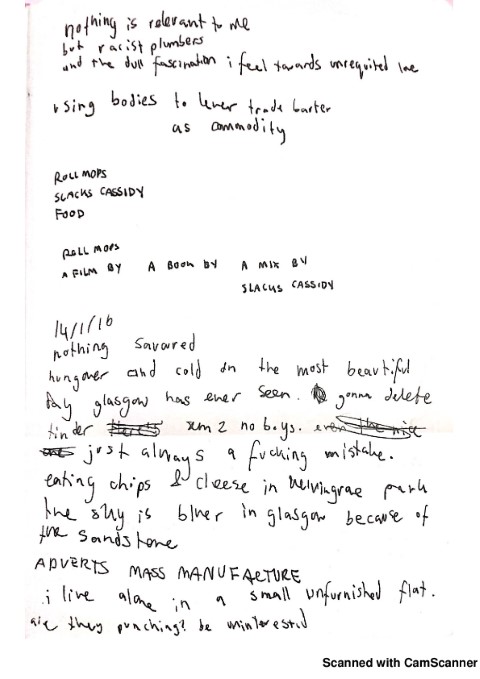 nothing is relevant to me
but racist plumbers
and the dull fascination i feel towards unrequited love
using bodies to lever trade barter
as commodity
ROLL MOPS
SLACKS CASSIDY
FOOD
ROLL MOPS
A FILM BY A BOOK BY A MIX BY
SLACKS CASSIDY
14/1/16
nothing savoured
hungover and cold on the most beautiful
day glasgow has ever seen. gonna delete
tinder xm2 no boys. even the nice
just always a fucking mistake.
eating chips & cheese in kelvingrove park
the sky is bluer in glasgow because of
the sandstone
ADVERTS MASS MANUFACTURE
i live alone in a small unfurnished flat.
are they punching? be
Scanned with CamScanner